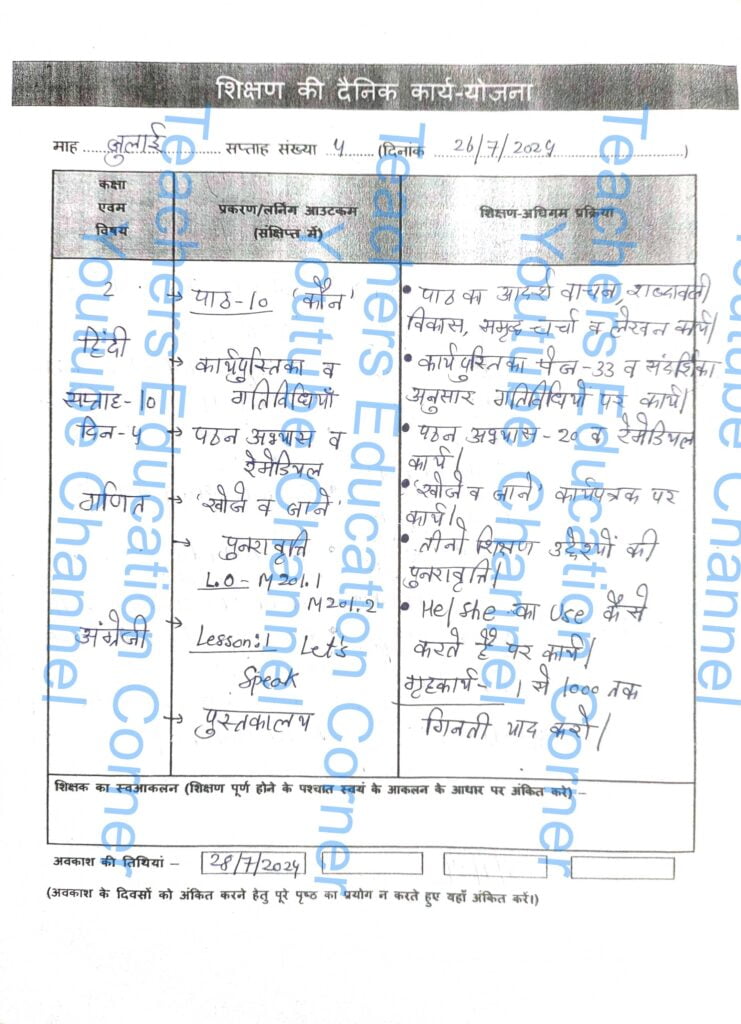 शिक्षण की दैनिक कार्य-योजना
माह ........जुलाई............ सप्ताह संख्या ..4.... (दिनांक ......26/7/2024..............................)
कक्षा
एवम
विषय
प्रकरण/लर्निंग आउटकम
(संक्षिप्त में)
शिक्षण-अधिगम प्रक्रिया
2
हिंदी
सप्ताह-10
दिन-4
गणित
अंग्रेजी
→ पाठ-10 'कौन'
→ कार्यपुस्तिका व
गतिविधियाँ
→ पठन अभ्यास व
रेमेडियल
→ 'खोजे व जाने'
→ पुनरावृत्ति
L.O- M201.1
M201.2
→ Lesson:1 Let's
Speak
→ पुस्तकालय
• पाठ का आदर्श वाचन, शब्दावली
विकास, समृद्ध चर्चा व लेखन कार्य।
• कार्यपुस्तिका पेज-33 व संदर्शिका
अनुसार गतिविधियों पर कार्य।
• पठन अभ्यास-20 व रेमेडियल
कार्य।
• 'खोजे व जाने' कार्यपत्रक पर
कार्य।
• तीनो शिक्षण उद्देश्यों की
पुनरावृत्ति।
• He/She का Use कैसे
करते है पर कार्य।
गृहकार्य- 1 से 1000 तक
गिनती याद करो।
शिक्षक का स्वआकलन (शिक्षण पूर्ण होने के पश्चात स्वयं के आकलन के आधार पर अंकित करें) –
अवकाश की तिथियां – 28/7/2024
(अवकाश के दिवसों को अंकित करने हेतु पूरे पृष्ठ का प्रयोग न करते हुए यहाँ अंकित करें।)
Teachers Education Corner
Youtube Channel
Teachers Education Corner
Youtube Channel
Teachers Education Corner
Youtube Channel